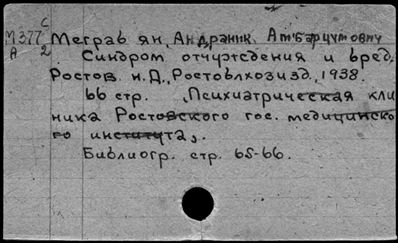 С
М377 Меграв ян, Андраник Амбарцумович
А 2 Синдром отчуждения и вред.
Ростов н.Д., Ростоблхозизд., 1938.
66 стр. „Психиатрическая кли
ника Ростовского гос. медицинско
го института„.
Библиогр. стр. 65-66.